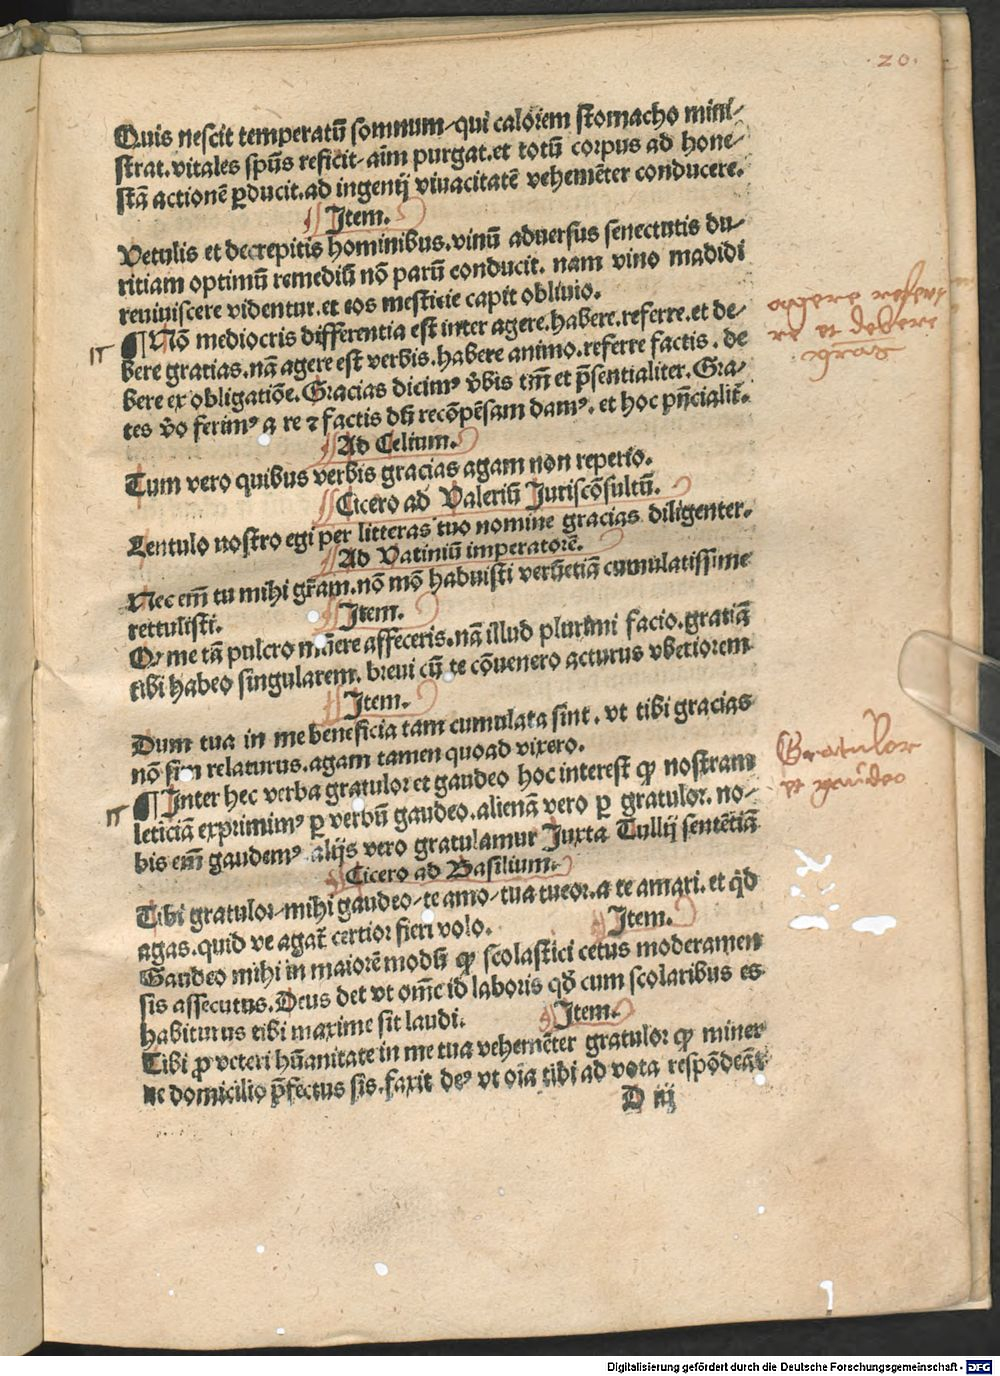 .20.
Quis nescit temperatū somnum-qui calorem stomacho mini-
strat.vitales spūs reficit-aīm purgat.et totū corpus ad hone-
stā actionē ꝑducit.ad ingenij viuacitatē vehemēter conducere.
¶ Item.
Vetulis et decrepitis hominibus.vinū aduersus senectutis du-
ritiam optimū remediū nō parū conducit. nam vino madidi
reuiuiscere videntur.et eos mesticie capit obliuio.
¶ Nō mediocris differentia est inter agere.habere.referre.et de-
bere gratias.nā agere est verbis.habere animo.referre factis. de
bere ex obligatiōe.Gracias dicimꝰ v̄bis tm̄ et p̄sentialiter. Gra-
tes v̄o ferimꝰ a re ⁊ factis dū recōpēsam damꝰ. et hoc pn̄cialit̄.
¶ Ad Celium.
Tum vero quibus verbis gracias agam non reperio.
¶ Cicero ad Valeriū Juriscōsultū.
Lentulo nostro egi per litteras tuo nomine gracias diligenter.
¶ Ad Vatiniū imperatorē.
Nec em̄ tu mihi gr̄am.nō mō habuisti verūetiā cumulatissime
rettulisti.
¶ Item.
Qꝙ me tā pulcro mūere affeceris.nā illud plurimi facio.gratiā
tibi habeo singularem. breui cū te cōuenero acturus vberiorem
¶ Item.
Dum tua in me beneficia tam cumulata sint. vt tibi gracias
nō sim relaturus.agam tamen quoad vixero.
¶ Inter hec verba gratulor et gaudeo hoc interest ꝙ nostram
leticiā exprimimꝰ ꝑ verbū gaudeo.alienā vero ꝑ gratulor. no-
bis em̄ gaudemꝰ alijs vero gratulamur Juxta Tullij sentētiā
¶ Cicero ad Basilium.
Tibi gratulor-mihi gaudeo-te amo-tua tueor.a te amari. et qd̄
agas.quid ve agat̄ certior fieri volo.
¶ Item.
Gaudeo mihi in maiorē modū ꝙ scolastici cetus moderamen
sis assecutus.Deus det vt om̄e id laboris qd̄ cum scolaribus es
habiturus tibi maxime sit laudi.
¶ Item.
Tibi ꝓ veteri hūanitate in me tua vehemēter gratulor ꝙ miner
ue domicilio p̄fectus sis.faxit deꝰ vt oīa tibi ad vota respōdeāt
D iij
agere refer
re et debere
grās
Gratulor
et gaudeo
Digitalisierung gefördert durch die Deutsche Forschungsgemeinschaft - DFG